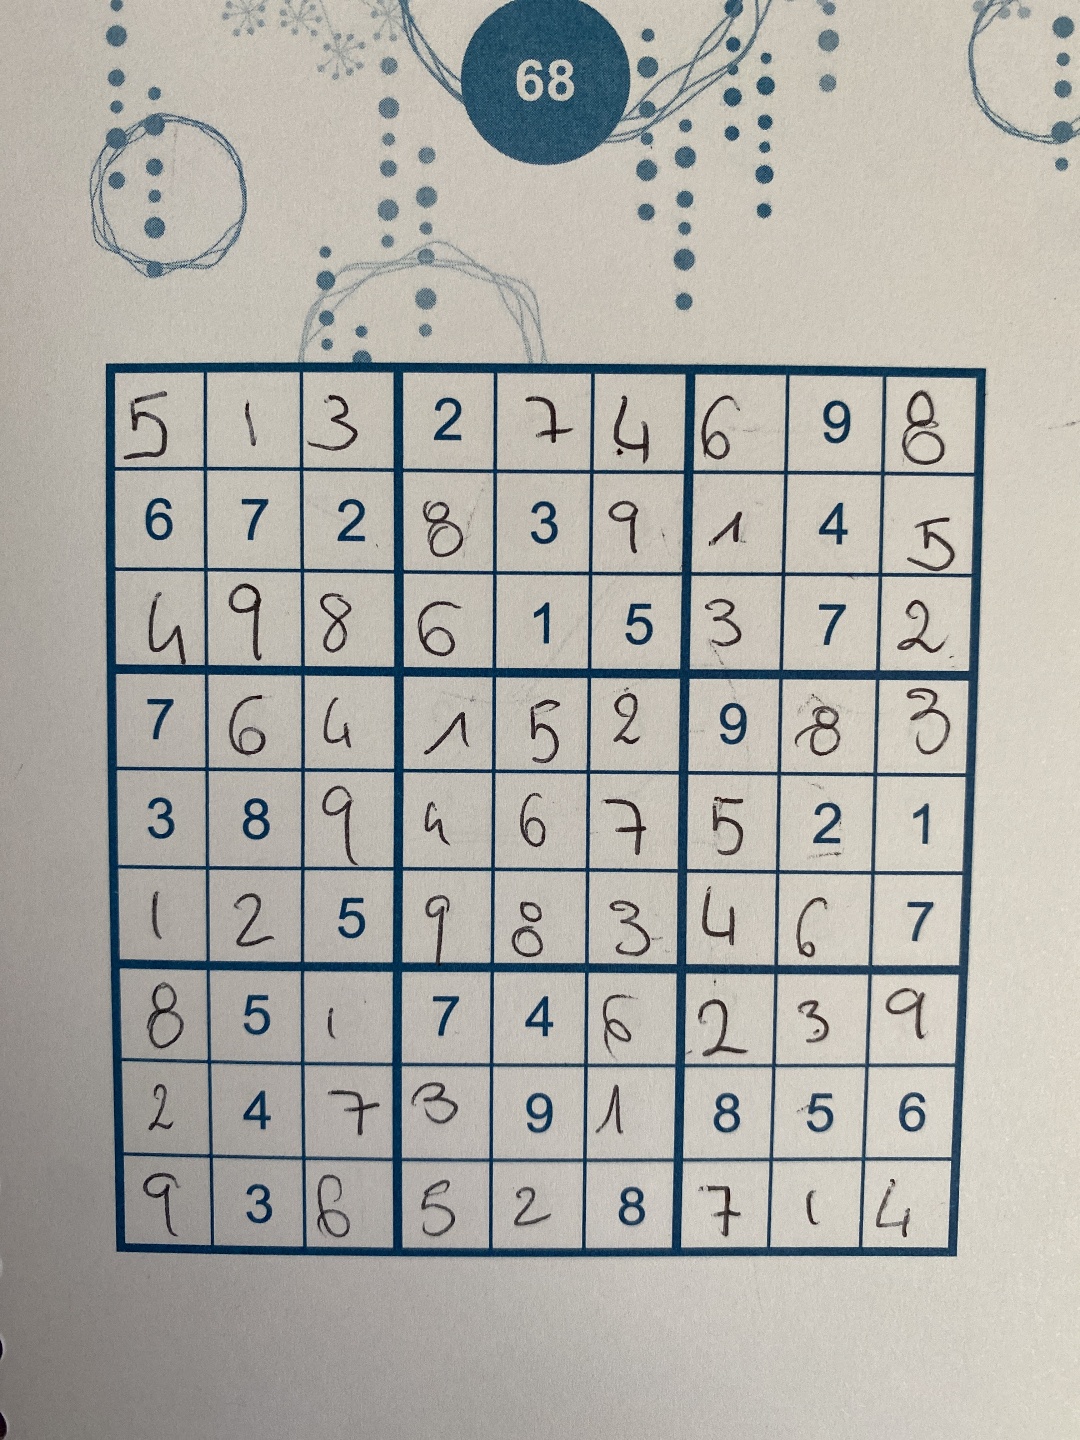 68
5 1 3 2 7 4 6 9 8
6 7 2 8 3 9 1 4 5
4 9 8 6 1 5 3 7 2
7 6 4 1 5 2 9 8 3
3 8 9 4 6 7 5 2 1
1 2 5 9 8 3 4 6 7
8 5 1 7 4 6 2 3 9
2 4 7 3 9 1 8 5 6
9 3 6 5 2 8 7 1 4